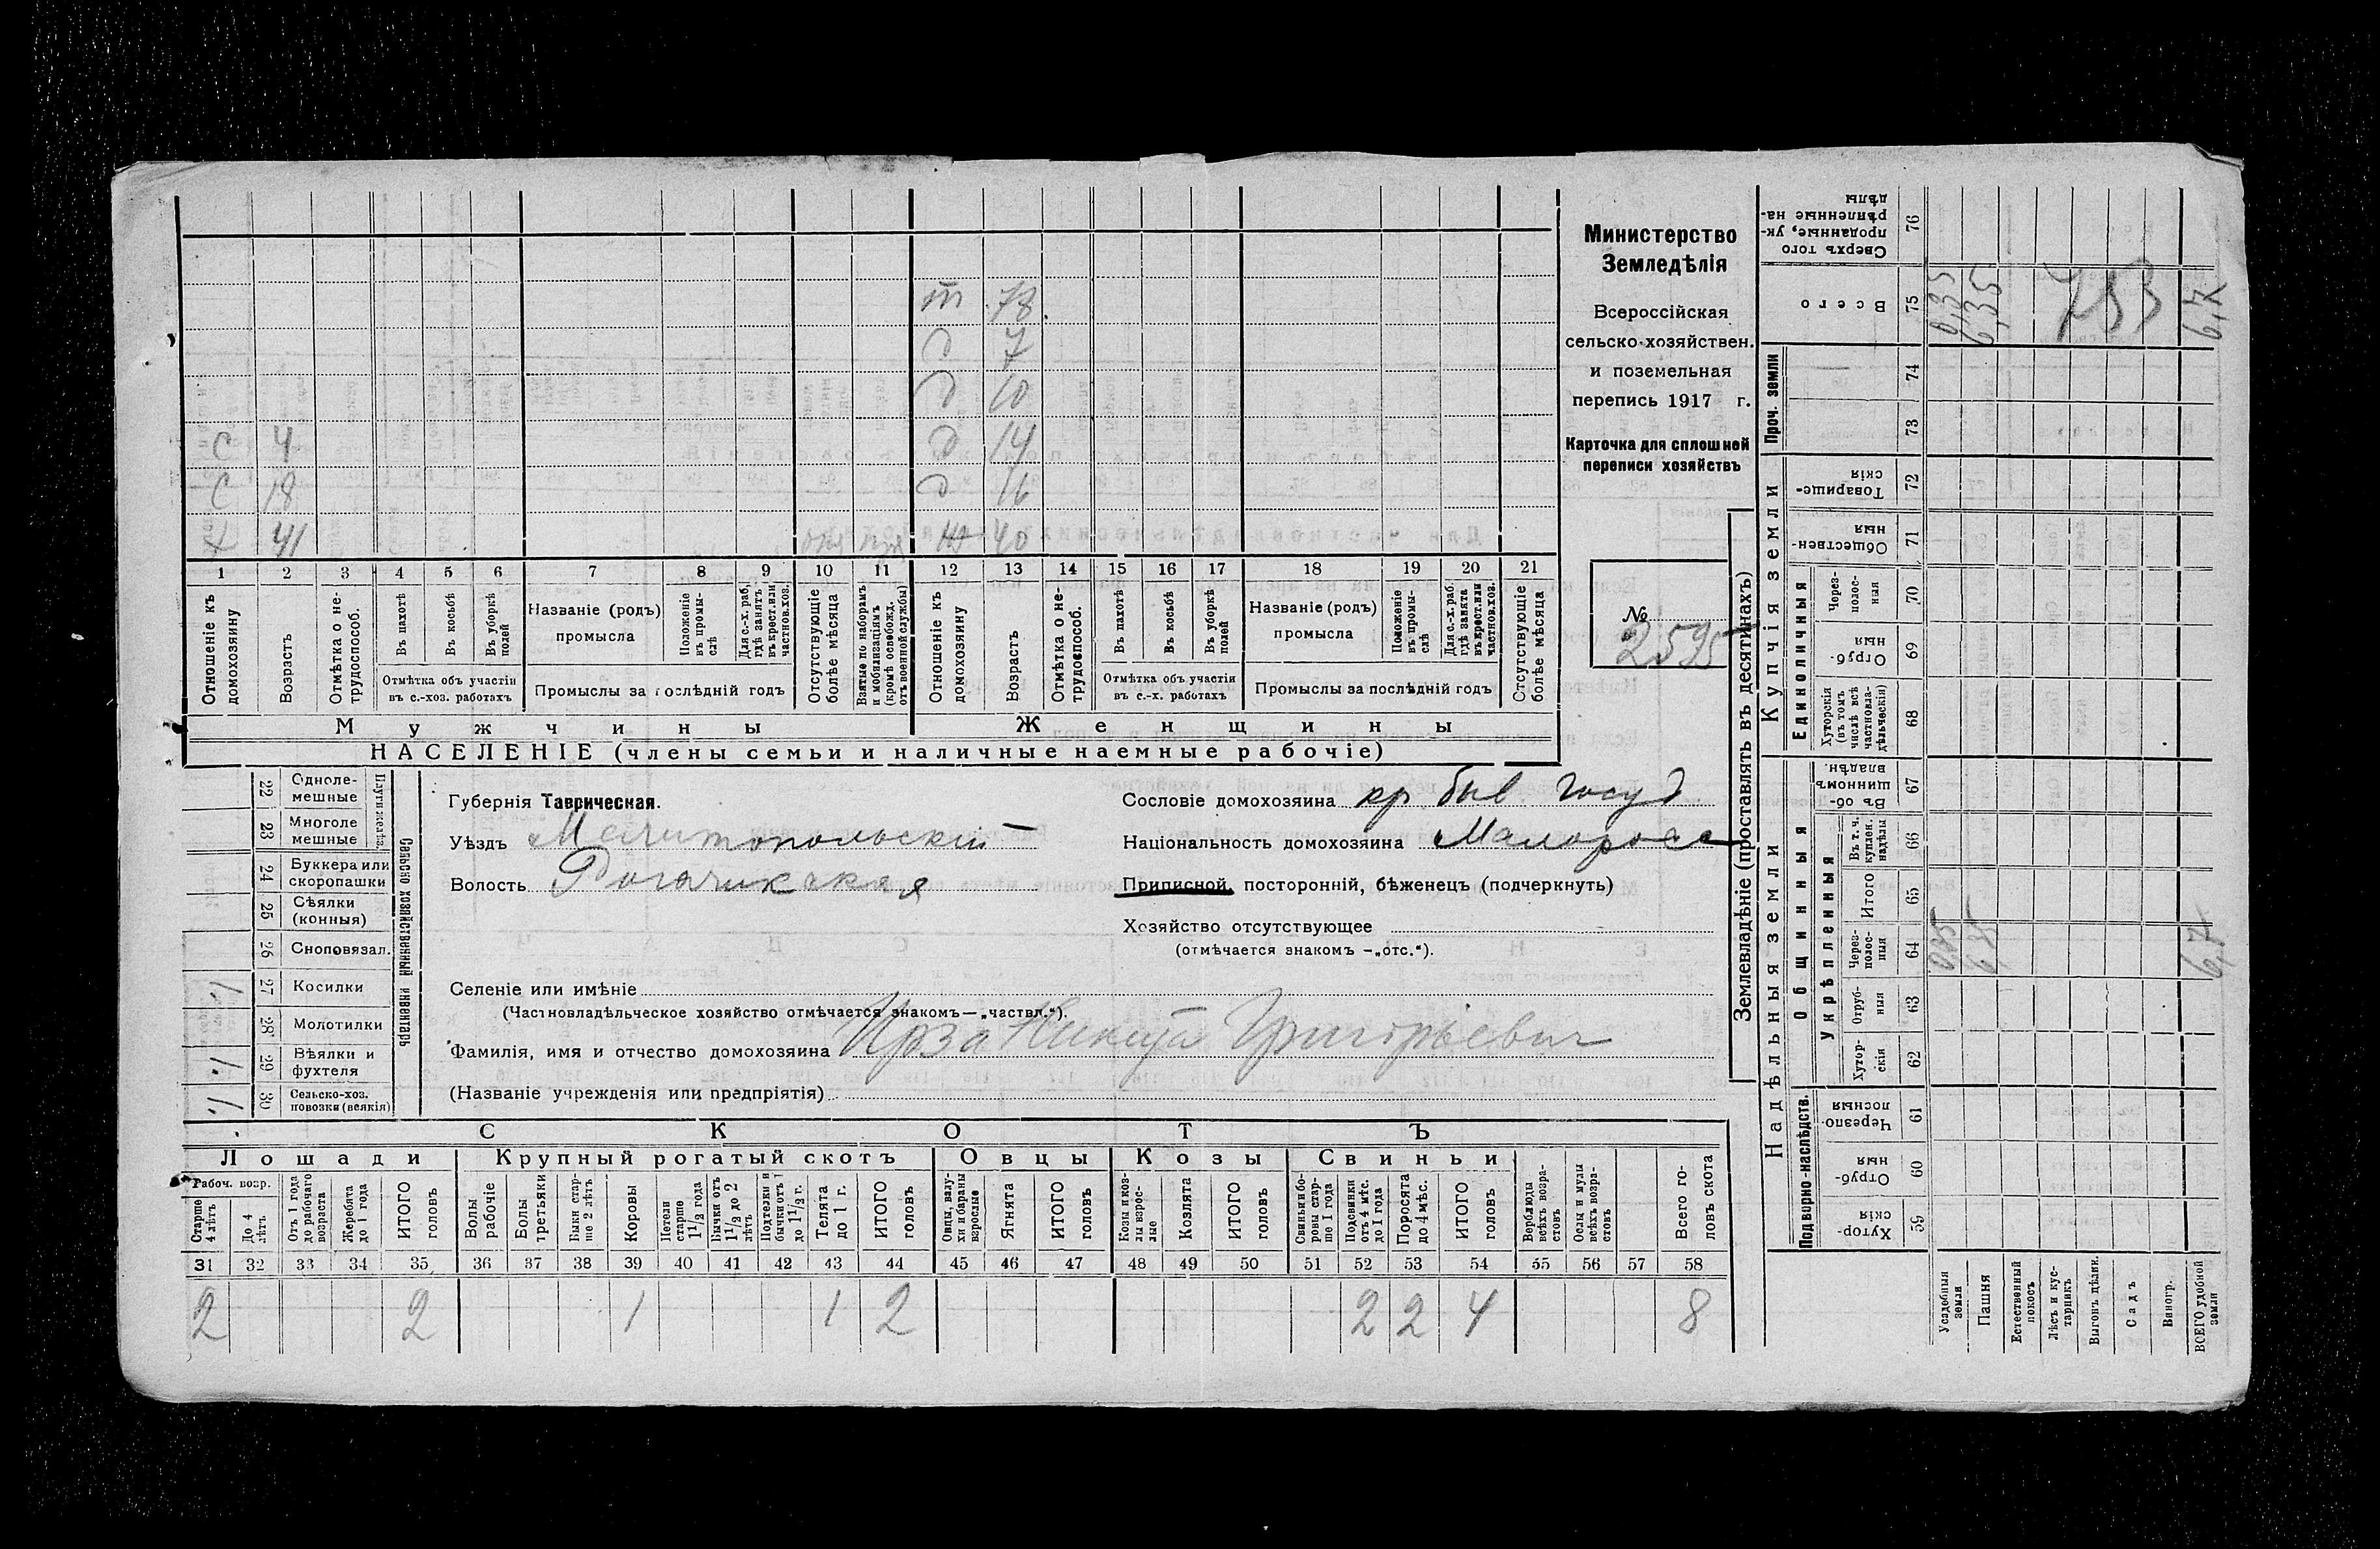 т 78
д 7
д 10
с 4 д 14
с 18 д 16
х 41 ж 40
1 2 3 4 5 6 7 8 9 10 11 12 13 14 15 16 17 18 19 20 21
Отношеніе къ домохозяину
Возрастъ
Отмѣтка о не-трудоспособ.
Въ пахотѣ
Въ косьбѣ
Въ уборкѣ полей
Отмѣтка объ участіи
въ с.-хоз. работахъ
Названіе (родъ)
промысла
Положеніе въ промы-слѣ
Для с.-х. раб. гдѣ занятъ въ крест. или частнов. хоз.
Промыслы за послѣдній годъ
Отсутствующіе болѣе мѣсяца
Взятые по наборамъ и мобилизаціямъ (кромѣ освобожд. отъ военной службы)
Отношеніе къ домохозяину
Возрастъ
Отмѣтка о не-трудоспособ.
Въ пахотѣ
Въ косьбѣ
Въ уборкѣ полей
Отмѣтка объ участіи
въ с.-х. работахъ
Названіе (родъ)
промысла
Положеніе въ промы-слѣ
Для с.-х. раб. гдѣ занята въ крест. или частнов. хоз.
Промыслы за послѣдній годъ
Отсутствующіе болѣе мѣсяца
Мужчины Женщины
НАСЕЛЕНІЕ (члены семьи и наличные наемные рабочіе)
Министерство
Земледѣлія
Всероссійская
сельско-хозяйствен.
и поземельная
перепись 1917 г.
Карточка для сплошной
переписи хозяйствъ
№
2595
Сельско хозяйственный инвентарь
Плуги желѣз.
22 Одноле-мешные
23 Многоле мешные
24 Буккера или скоропашки
25 Сѣялки (конныя)
26 Сноповязал.
27 Косилки
28 Молотилки
29 Вѣялки и фухтеля
30 Сельско-хоз. повозки (всякія)
Губернія Таврическая.
Уѣздъ Мелитопольскій
Волость Рогачикская
Сословіе домохозяина кр быв госуд
Національность домохозяина Малоросс
Приписной, посторонній, бѣженецъ (подчеркнуть)
Хозяйство отсутствующее
(отмѣчается знакомъ —„отс.“).
Селеніе или имѣніе
(Частновладѣльческое хозяйство отмѣчается знакомъ—„частвл.“).
Фамилія, имя и отчество домохозяина Ирза Никита Григорьевич
(Названіе учрежденія или предпріятія)
СКОТЪ
Лошади Крупный рогатый скотъ Овцы Козы Свиньи
Рабоч. возр.
Старше 4 лѣтъ
До 4 лѣтъ
Отъ 1 года до рабочаго возраста
Жеребята до 1 года
ИТОГО головъ
Волы рабочіе
Волы третьяки
Быки стар-ше 2 лѣтъ
Коровы
Нетели старше 1½ года
Бычки отъ 1½ до 2 лѣтъ
Подтелки и бычки отъ 1 до 1½ г.
Телята до 1 г.
ИТОГО головъ
Овцы, валу-хи и бараны взрослые
Ягнята
ИТОГО головъ
Козы и коз-лы взрос-лые
Козлята
ИТОГО головъ
Свиньи и бо-ровы стар-ше 1 года
Подсвинки отъ 4 мѣс. до 1 года
Поросята до 4 мѣс.
ИТОГО головъ
Верблюды всѣхъ возра-стовъ
Ослы и мулы всѣхъ возра-стовъ
Всего го-ловъ скота
31 32 33 34 35 36 37 38 39 40 41 42 43 44 45 46 47 48 49 50 51 52 53 54 55 56 57 58
2 2 1 1 2 2 2 4 8
Землевладѣніе (проставлять въ десятинахъ)
Купчія земли
Надѣльныя земли
Проч. земли
Единоличныя
Общинныя
Укрѣпленныя
Подворно-наслѣдств.
Сверхъ того проданные, ук-рѣпленные на-дѣлы 76
Всего 75 0,35 6,35 753 6,7
74
73
Товарище-скія 72
Обществен-ныя 71
Через-полос-ныя 70
Отруб-ныя 69
Хуторскія (въ томъ числѣ всѣ частновла-дѣльческія) 68
Въ об-щинномъ владѣн. 67
Въ т. ч. куплен. надѣлы 66
Итого 65
Через-полос-ныя 64 0,35 6,35 6,7
Отруб-ныя 63
Хутор-скія 62
Черезпо-лосныя 61
Отруб-ныя 60
Хутор-скія 59
Усадебныя земли
Пашня
Естественный покосъ
Лѣсъ и кус-тарникъ
Выгонъ дѣлян.
Садъ
Виногр.
ВСЕГО удобной земли